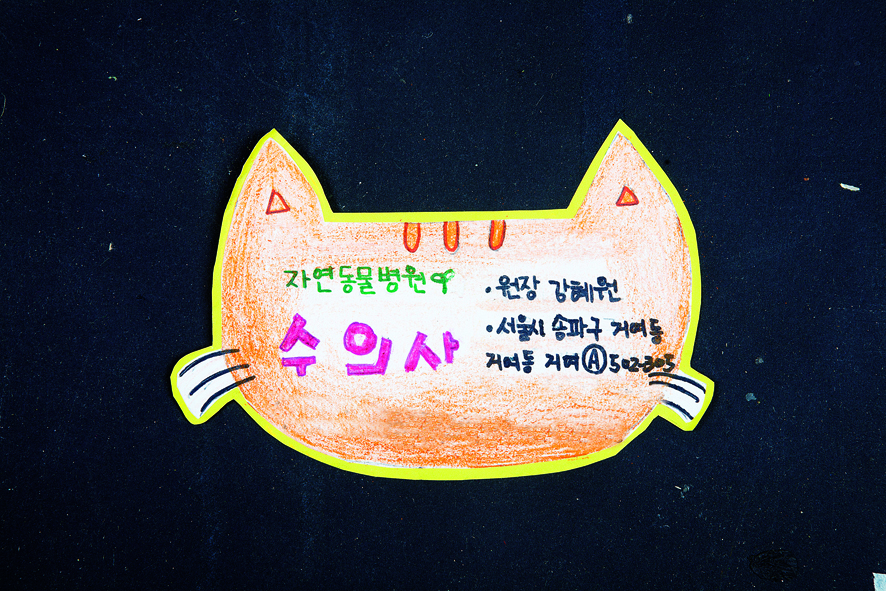 자연동물병원
수의사
·원장 강혜원
·서울시 송파구 거여동
거여동 거여Ⓐ502-305